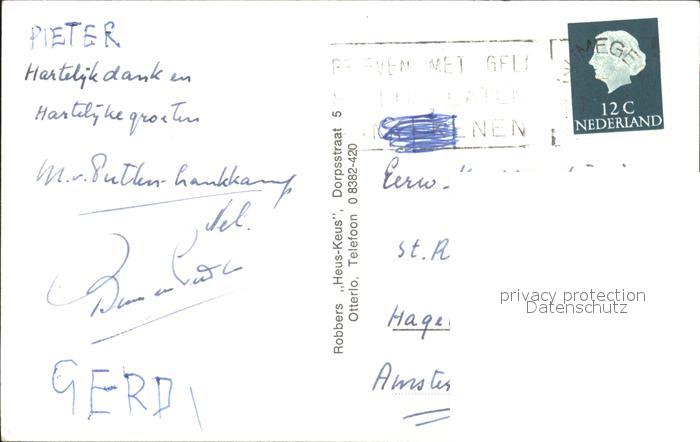 PIETER
Hartelijk dank en
Hartelijke groeten
M. v. Putten-Lankkamp
Nel.
GERDA
Robbers „Heus-Keus", Dorpsstraat 5
Otterlo, Telefoon 0 8382-420
MET GELD
LATEN
NIJMEGE
12 C
NEDERLAND
St. R
Hage
Amste
privacy protection
Datenschutz